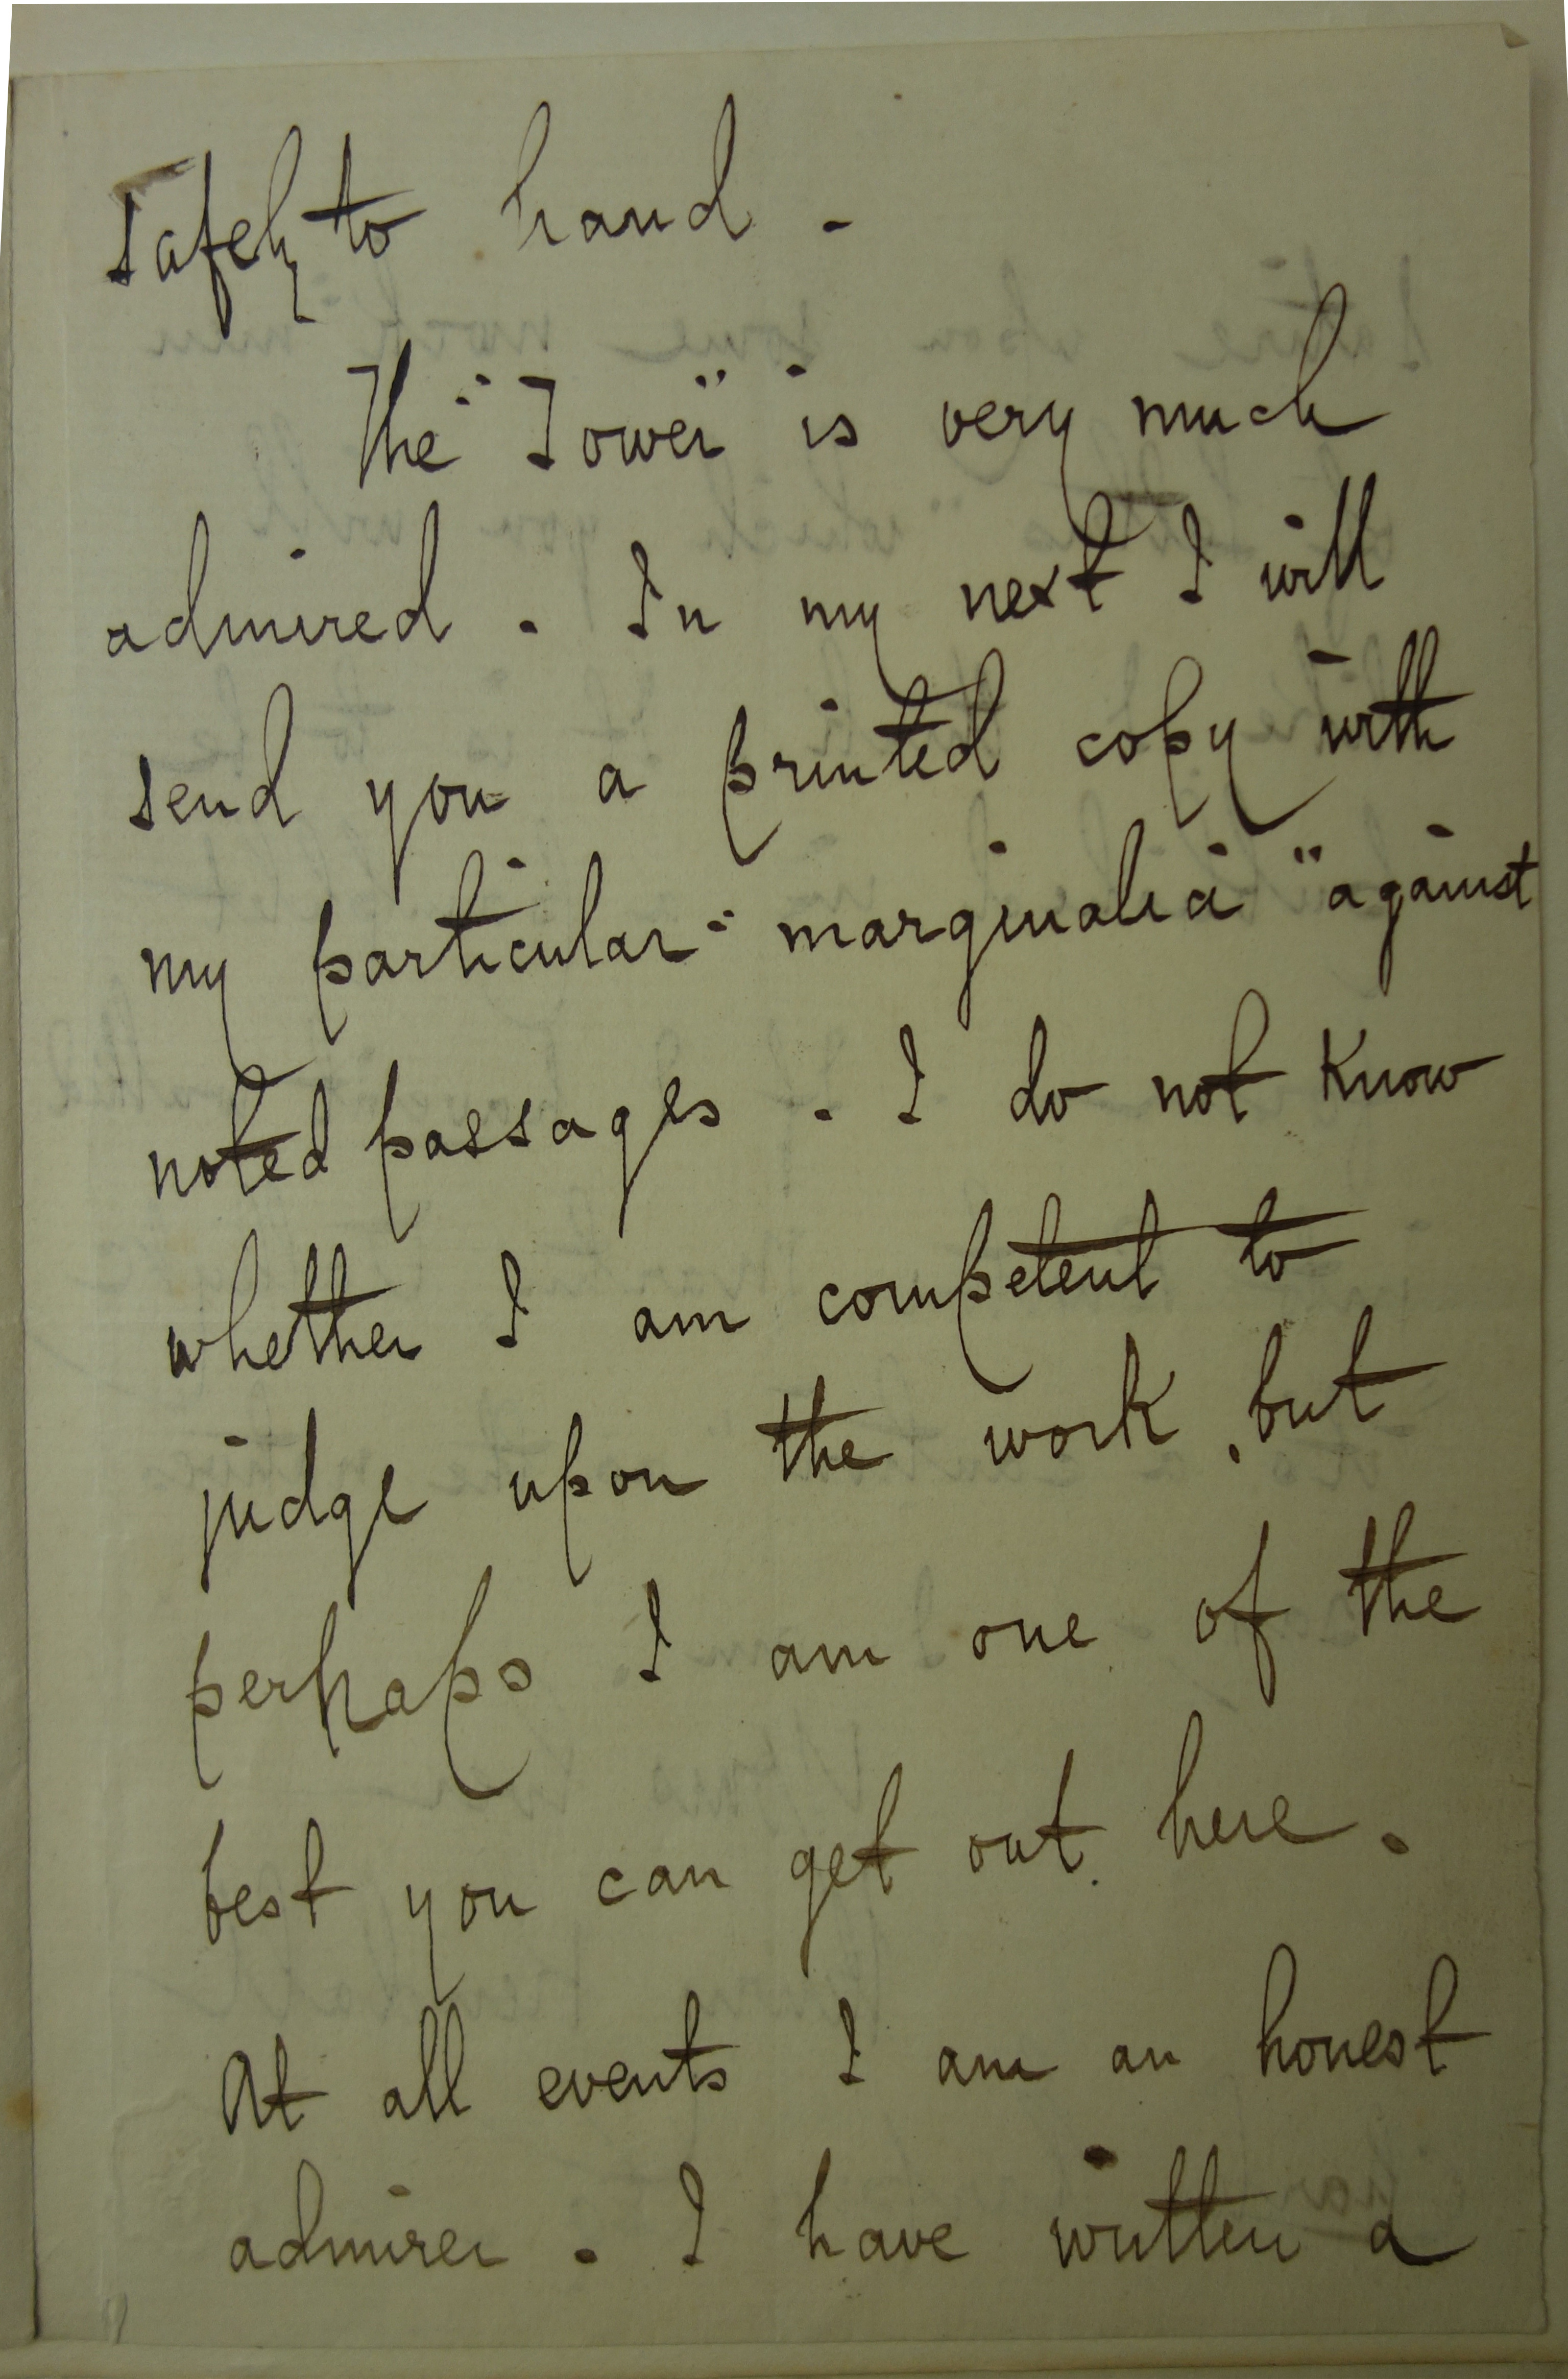 safely to hand.
The "Tower" is very much
admired. In my next I will
send you a printed copy with
my particular "marginalia" against
noted passages. I do not know
whether I am competent to
judge upon the work, but
perhaps I am one of the
best you can get out here.
At all events I am an honest
admirer. I have written a